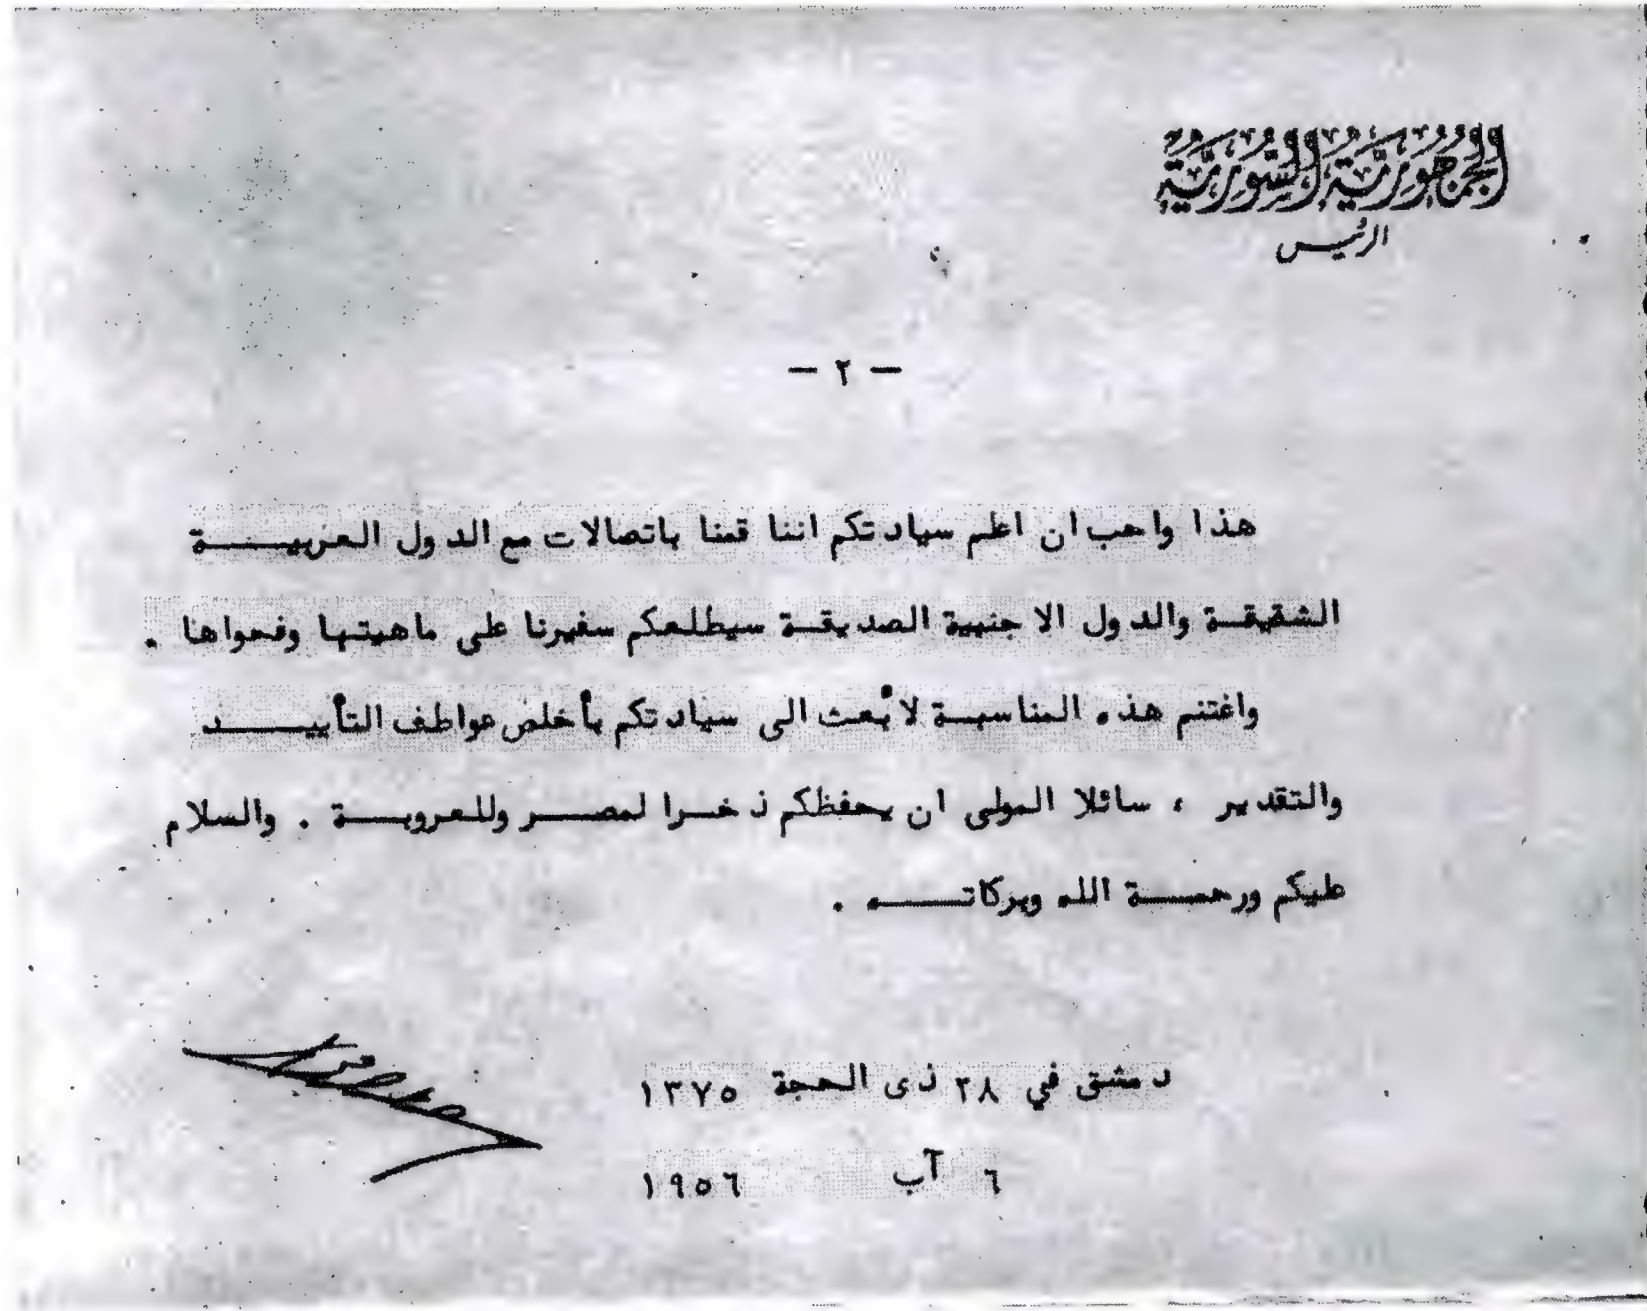 الجمهورية السورية
الرئيس
— ٢ —
هذا واحب ان اعلم سيادتكم اننا قمنا باتصالات مع الدول العربيـــة
الشقيقـة والدول الاجنبية الصديقـة سيطلعكم سفيرنا على ماهيتها وفحواها .
واغتنم هذه المناسبـة لأبعث الى سيادتكم بأخلص عواطف التأييـــد
والتقدير ، سائلا المولى ان يحفظكم ذخـرا لمصـــر وللعروبـــة . والسلام
عليكم ورحمـــة الله وبركاتـــه .
دمشق في ٢٨ ذى الحجة ١٣٧٥
٦ آب ١٩٥٦